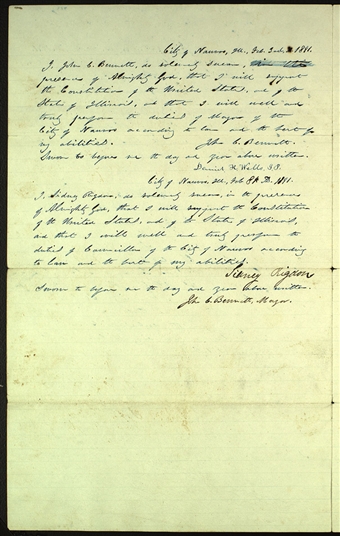 City of Nauvoo, Ill. Feb. 3rd, 1841.
I, John C. Bennett, do solemnly swear, in the
presence of Almighty God, that I will support
the Constitution of the United States, and of the
State of Illinois, and that I will well and
truly perform the duties of Mayor of the
City of Nauvoo according to law and the best of
my abilities.
John C. Bennett.
Sworn to before me the day and year above written.
Daniel H. Wells, J.P.
City of Nauvoo, Ill., Feb. 1841.
I, Sidney Rigdon, do solemnly swear, in the presence
of Almighty God, that I will support the Constitution
of the United States, and of the State of Illinois,
and that I will well and truly perform the
duties of Councillor of the City of Nauvoo according
to law and the best of my abilities.
Sidney Rigdon
Sworn to before me the day and year above written.
John C. Bennett, Mayor.